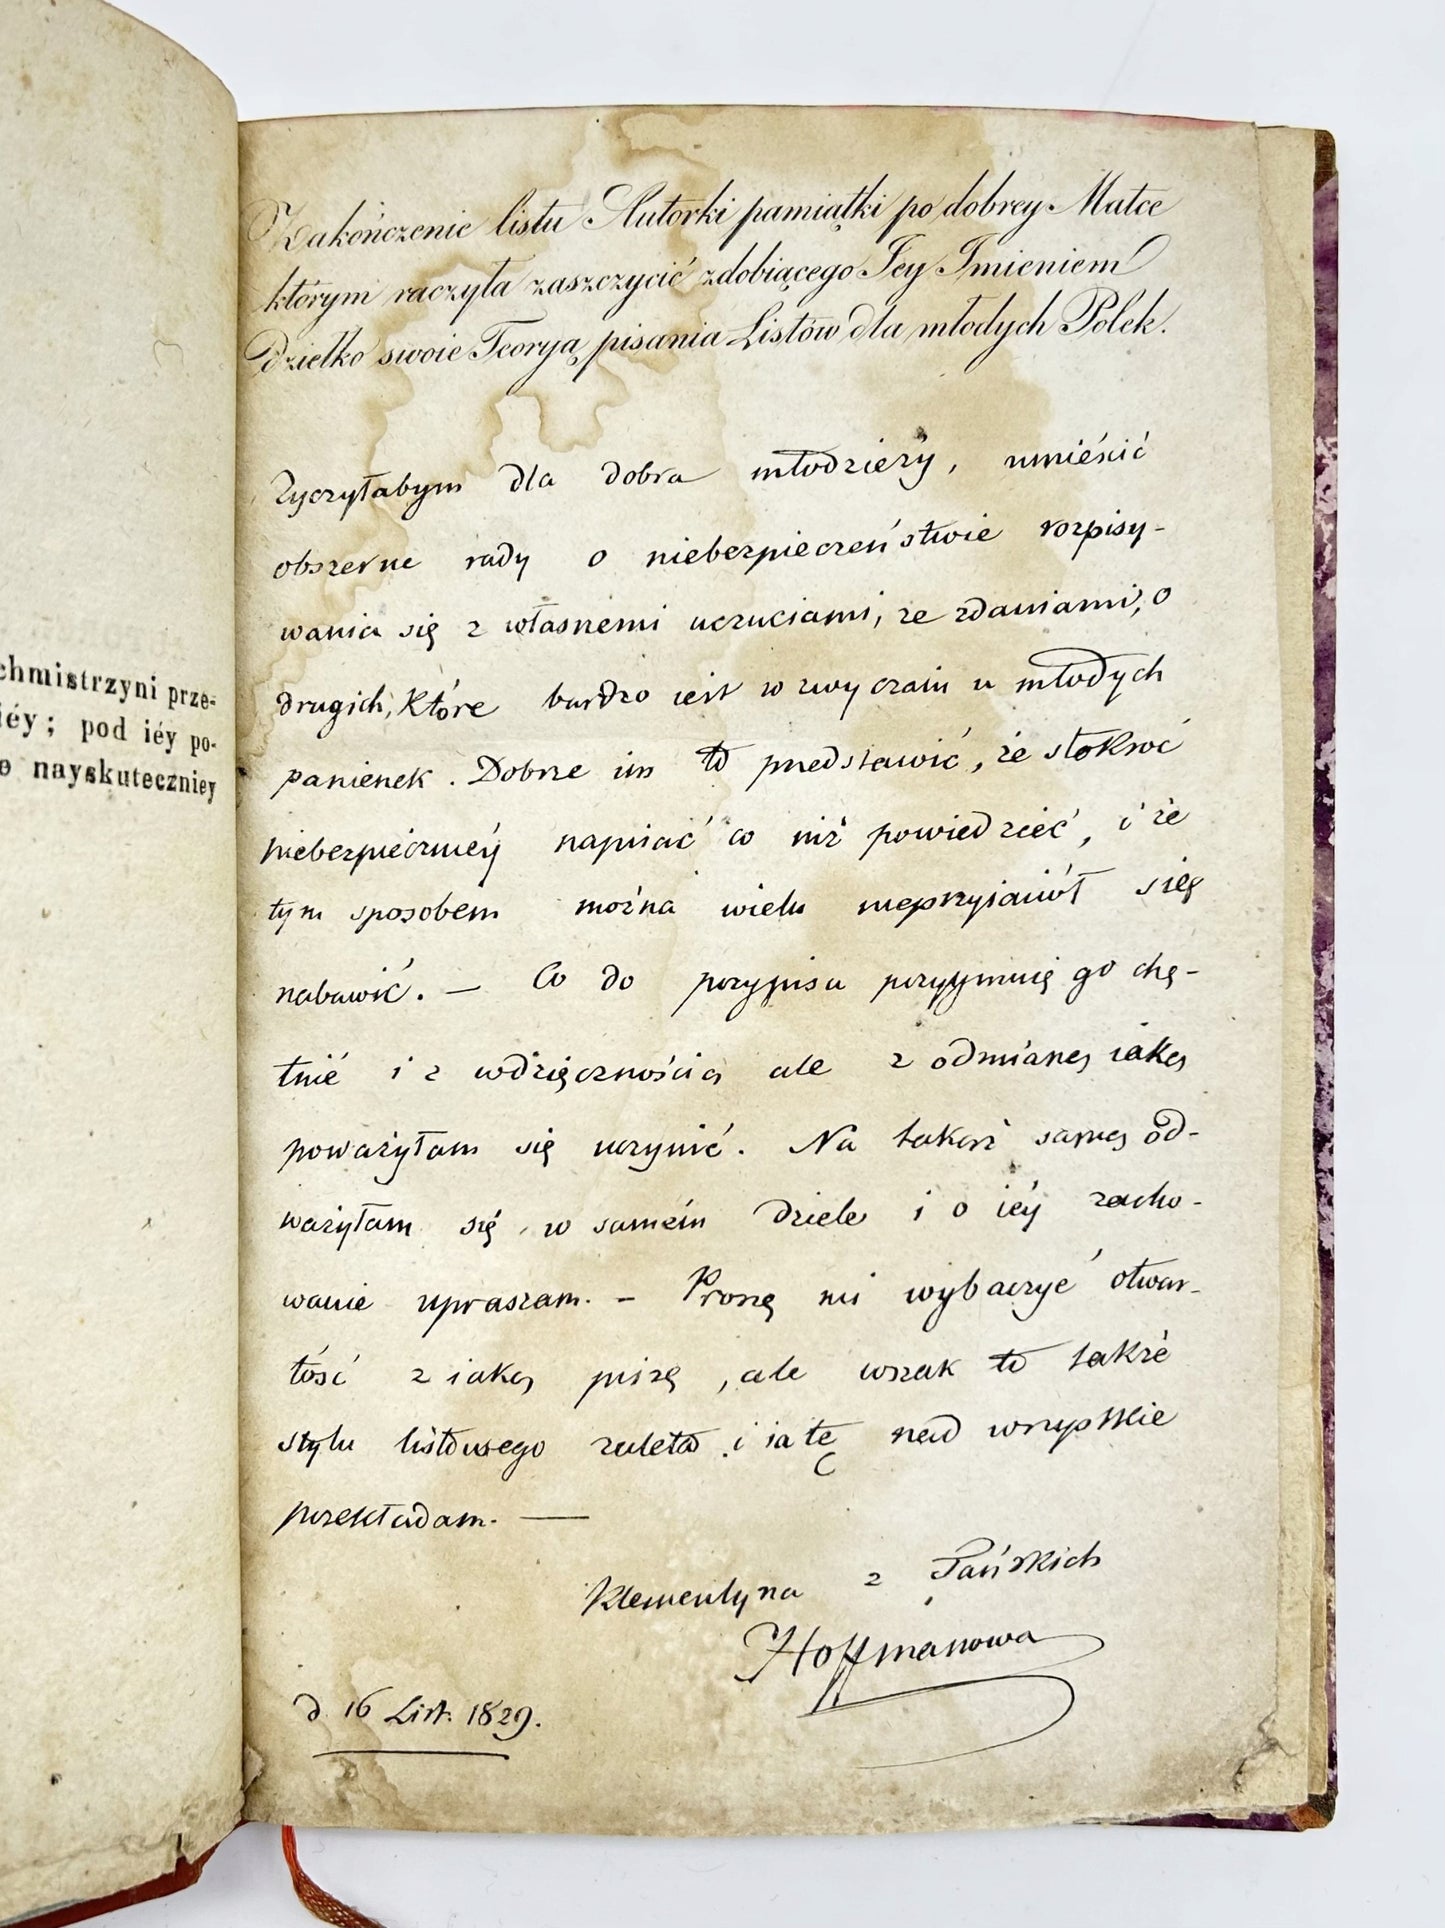 chmistrzyni prze-
iéy; pod iéy po-
o nayskuteczniey
Zakończenie listu Autorki pamiątki po dobrey Matce
którym raczyła zaszczycić zdobiącego Jey Imieniem
Dziełko swoie Teoryą pisania Listów dla młodych Polek.
Życzyłabym dla dobra młodzieży, umieścić
obszerne rady o niebezpieczeństwie rozpisy-
wania się z własnemi uczuciami, ze zdaniami, o
drugich, które bardzo iest w zwyczaiu u młodych
panienek. Dobrze im to przedstawić, że stokroć
niebezpieczniey napisać co niż powiedzieć, i że
tym sposobem można wielu nieprzyiaciół się
nabawić. — Co do przypisu przyymuię go chę-
tnie i z wdzięcznością ale z odmianą iaką
poważyłam się uczynić. Na takąż samą od-
ważyłam się w samém dziele i o iéy zacho-
wanie upraszam. — Proszę mi wybaczyć otwar-
tość z iaką piszę, ale wszak to także
stylu listowego zaleta i ia tę nad wszystkie
przekładam. —
Klementyna z Tańskich
Hoffmanowa
d. 16 List. 1829.